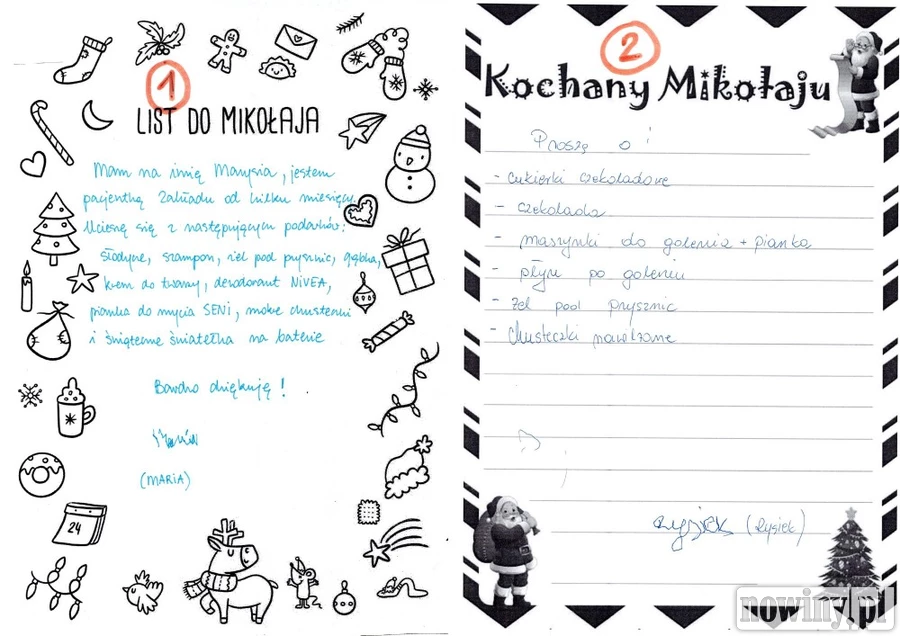 1
LIST DO MIKOŁAJA
Mam na imię Marysia, jestem
pacjentką Zakładu od kilku miesięcy.
Ucieszę się z następujących podarków:
słodycze, szampon, żel pod prysznic, gąbka,
krem do twarzy, dezodorant NIVEA,
pianka do mycia SENI, mokre chusteczki
i świąteczne światełka na baterie
Bardzo dziękuję!
(MARIA)
24
2
Kochany Mikołaju
Proszę o!
- cukierki czekoladowe
- czekolada
- maszynki do golenia + pianka
- płyn po goleniu
- żel pod prysznic
- chusteczki nawilżone
Rysiek (Rysiek)
nowiny.pl